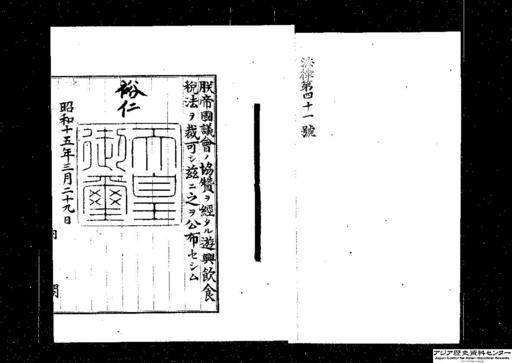 法律第四十一號
朕帝國議會ノ協贊ヲ經タル遊興飮食
稅法ヲ裁可シ玆ニ之ヲ公布セシム
裕仁
天皇御璽
昭和十五年三月二十九日
内閣
アジア歴史資料センター
Japan Center for Asian Historical Records